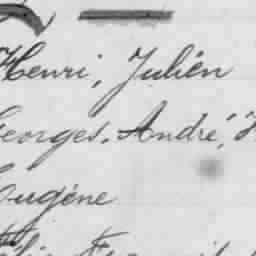 Henri, Julien
Georges, André,
Eugène